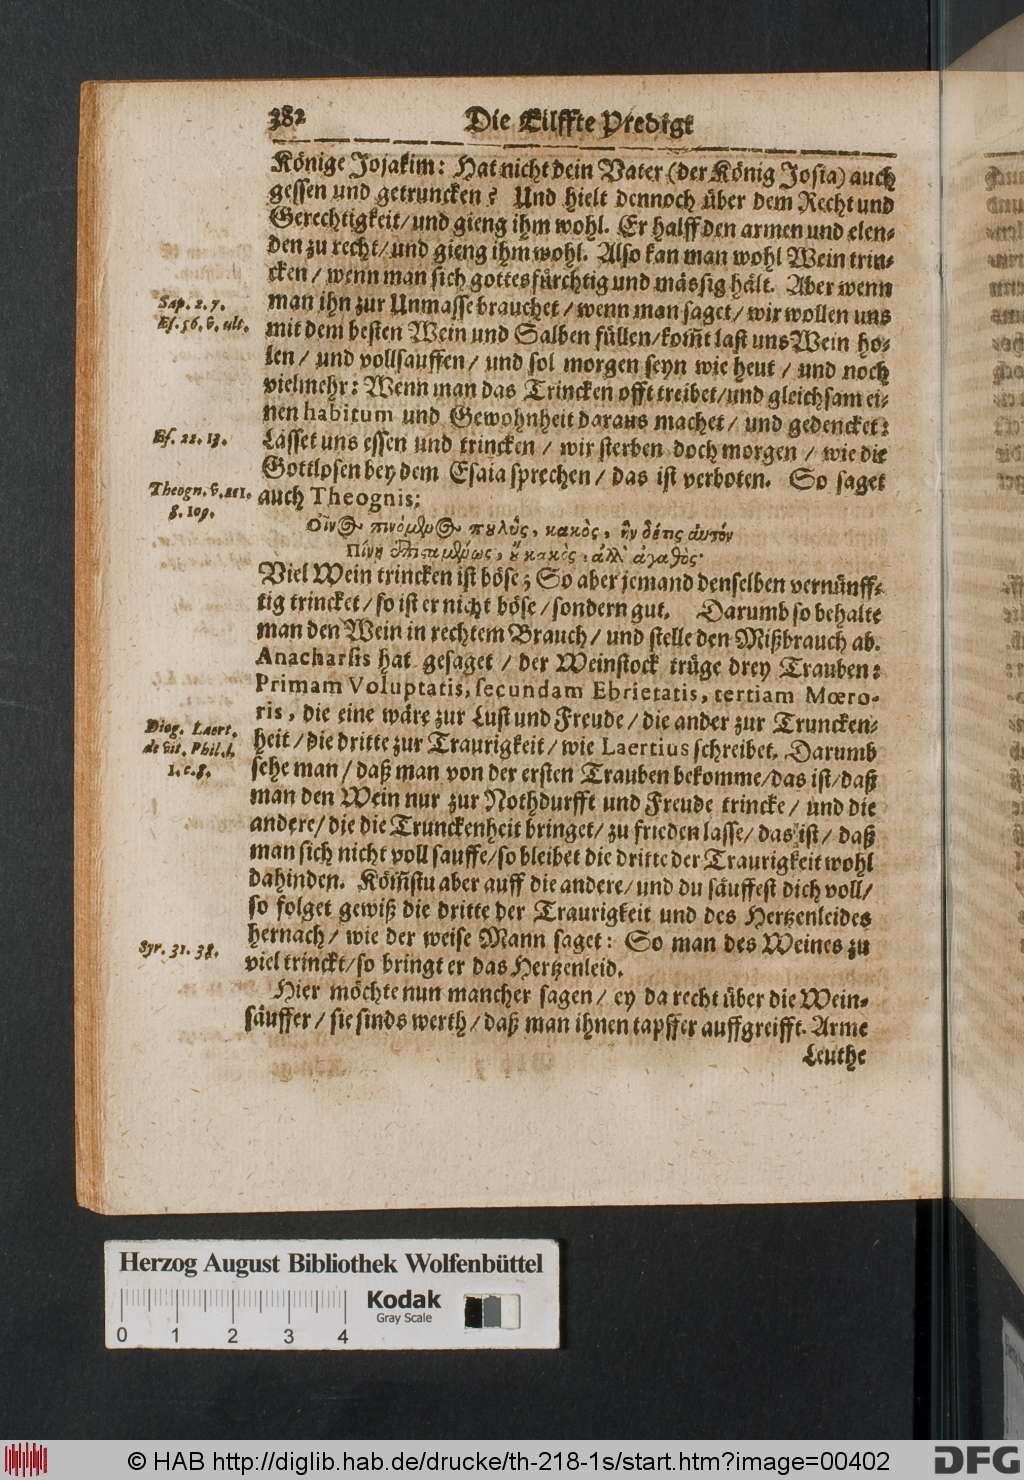 382 Die Eilffte Predigt
Könige Jojakim: Hat nicht dein Vater (der König Josia) auch
gessen und getruncken? Und hielt dennoch über dem Recht und
Gerechtigkeit/ und gieng ihm wohl. Er halff den armen und elen-
den zu recht/ und gieng ihm wohl. Also kan man wohl Wein trin-
cken/ wenn man sich gottesfürchtig und mässig hält. Aber wenn
Sap. 2. 7. man ihn zur Unmasse brauchet/ wenn man saget/ wir wollen uns
Es. 56. v. ult. mit dem besten Wein und Salben füllen/ kom̃t last uns Wein ho-
len/ und vollsauffen/ und sol morgen seyn wie heut/ und noch
vielmehr: Wenn man das Trincken offt treibet/ und gleichsam ei-
nen habitum und Gewohnheit daraus machet/ und gedencket:
Es. 22. 13. Lasset uns essen und trincken/ wir sterben doch morgen/ wie die
Gottlosen bey dem Esaia sprechen/ das ist verboten. So saget
Theogn. v. 211. auch Theognis:
g. 109.
Οἶνος πινόμενος πουλὺς, κακὸς, ἢν δέ τις αὐτόν
Πίνῃ ἐπισταμένως, οὐ κακὸς, ἀλλ' ἀγαθὸς·
Viel Wein trincken ist böse; So aber jemand denselben vernünff-
tig trincket/ so ist er nicht böse/ sondern gut. Darumb so behalte
man den Wein in rechtem Brauch/ und stelle den Mißbrauch ab.
Anacharsis hat gesaget/ der Weinstock trüge drey Trauben:
Primam Voluptatis, secundam Ebrietatis, tertiam Mœro-
Diog. Laert. ris, die eine wäre zur Lust und Freude/ die ander zur Truncken-
de vit. Phil. l. heit/ die dritte zur Traurigkeit/ wie Laertius schreibet. Darumb
1. c. 8. sehe man/ daß man von der ersten Trauben bekomme/ das ist/ daß
man den Wein nur zur Nothdurfft und Freude trincke/ und die
andere/ die die Trunckenheit bringet/ zu frieden lasse/ das ist/ daß
man sich nicht voll sauffe/ so bleibet die dritte der Traurigkeit wohl
dahinden. Köm̃stu aber auff die andere/ und du säuffest dich voll/
so folget gewiß die dritte der Traurigkeit und des Hertzenleides
Syr. 31. 38. hernach/ wie der weise Mann saget: So man des Weines zu
viel trinckt/ so bringt er das Hertzenleid.
Hier möchte nun mancher sagen/ ey da recht über die Wein-
säuffer/ sie sinds werth/ daß man ihnen tapffer auffgreifft. Arme
Leuthe
Herzog August Bibliothek Wolfenbüttel
Kodak
Gray Scale
0 1 2 3 4
© HAB http://diglib.hab.de/drucke/th-218-1s/start.htm?image=00402
DFG